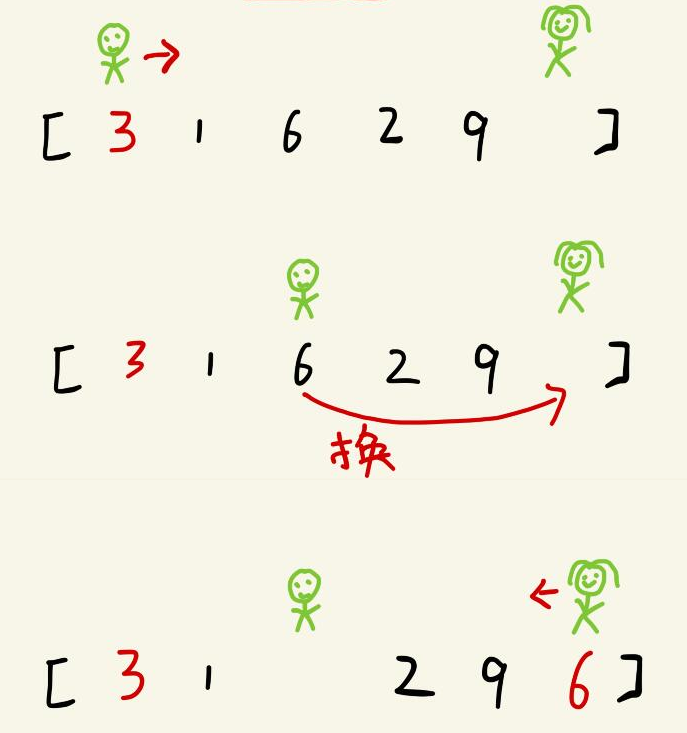 [ 3 1 6 2 9 ]
[ 3 1 6 2 9 ]
换
[ 3 1 2 9 6 ]